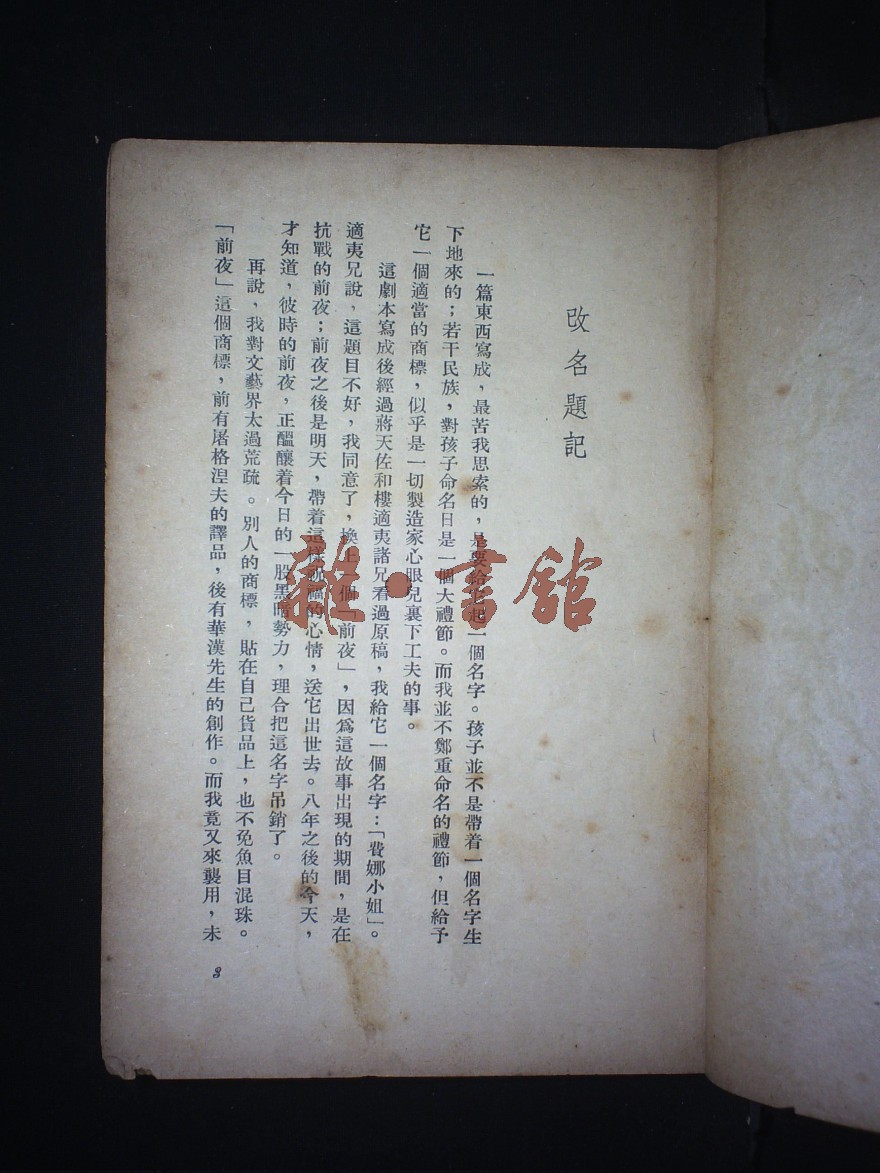 改名題記
一篇東西寫成，最苦我思索的，是要給它起一個名字。孩子並不是帶着一個名字生
下地來的；若干民族，對孩子命名日是一個大禮節。而我並不鄭重命名的禮節，但給予
它一個適當的商標，似乎是一切製造家心眼兒裏下工夫的事。
這劇本寫成後經過蔣天佐和樓適夷諸兄看過原稿，我給它一個名字：「費娜小姐」。
適夷兄說，這題目不好，我同意了，換上一個「前夜」，因爲這故事出現的期間，是在
抗戰的前夜；前夜之後是明天，帶着這樣祝禱的心情，送它出世去。八年之後的今天，
才知道，彼時的前夜，正醞釀着今日的一股黑暗勢力，理合把這名字吊銷了。
再說，我對文藝界太過荒疏。別人的商標，貼在自己貨品上，也不免魚目混珠。
「前夜」這個商標，前有屠格涅夫的譯品，後有華漢先生的創作。而我竟又來襲用，未
3
雜·書館